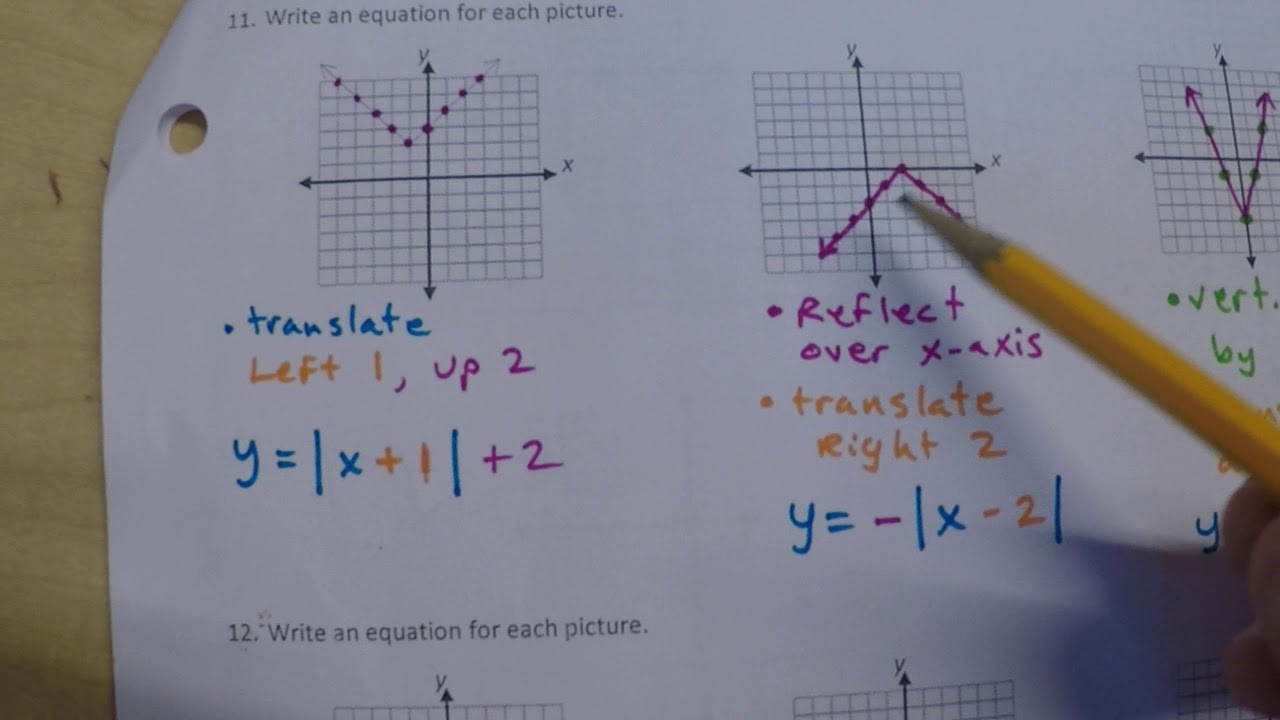 11. Write an equation for each picture.
y
x
y
x
y
• translate
Left 1, up 2
y = |x + 1| + 2
• Reflect
over x-axis
• translate
Right 2
y = -|x - 2|
• vert.
by
y
12. Write an equation for each picture.
y
y